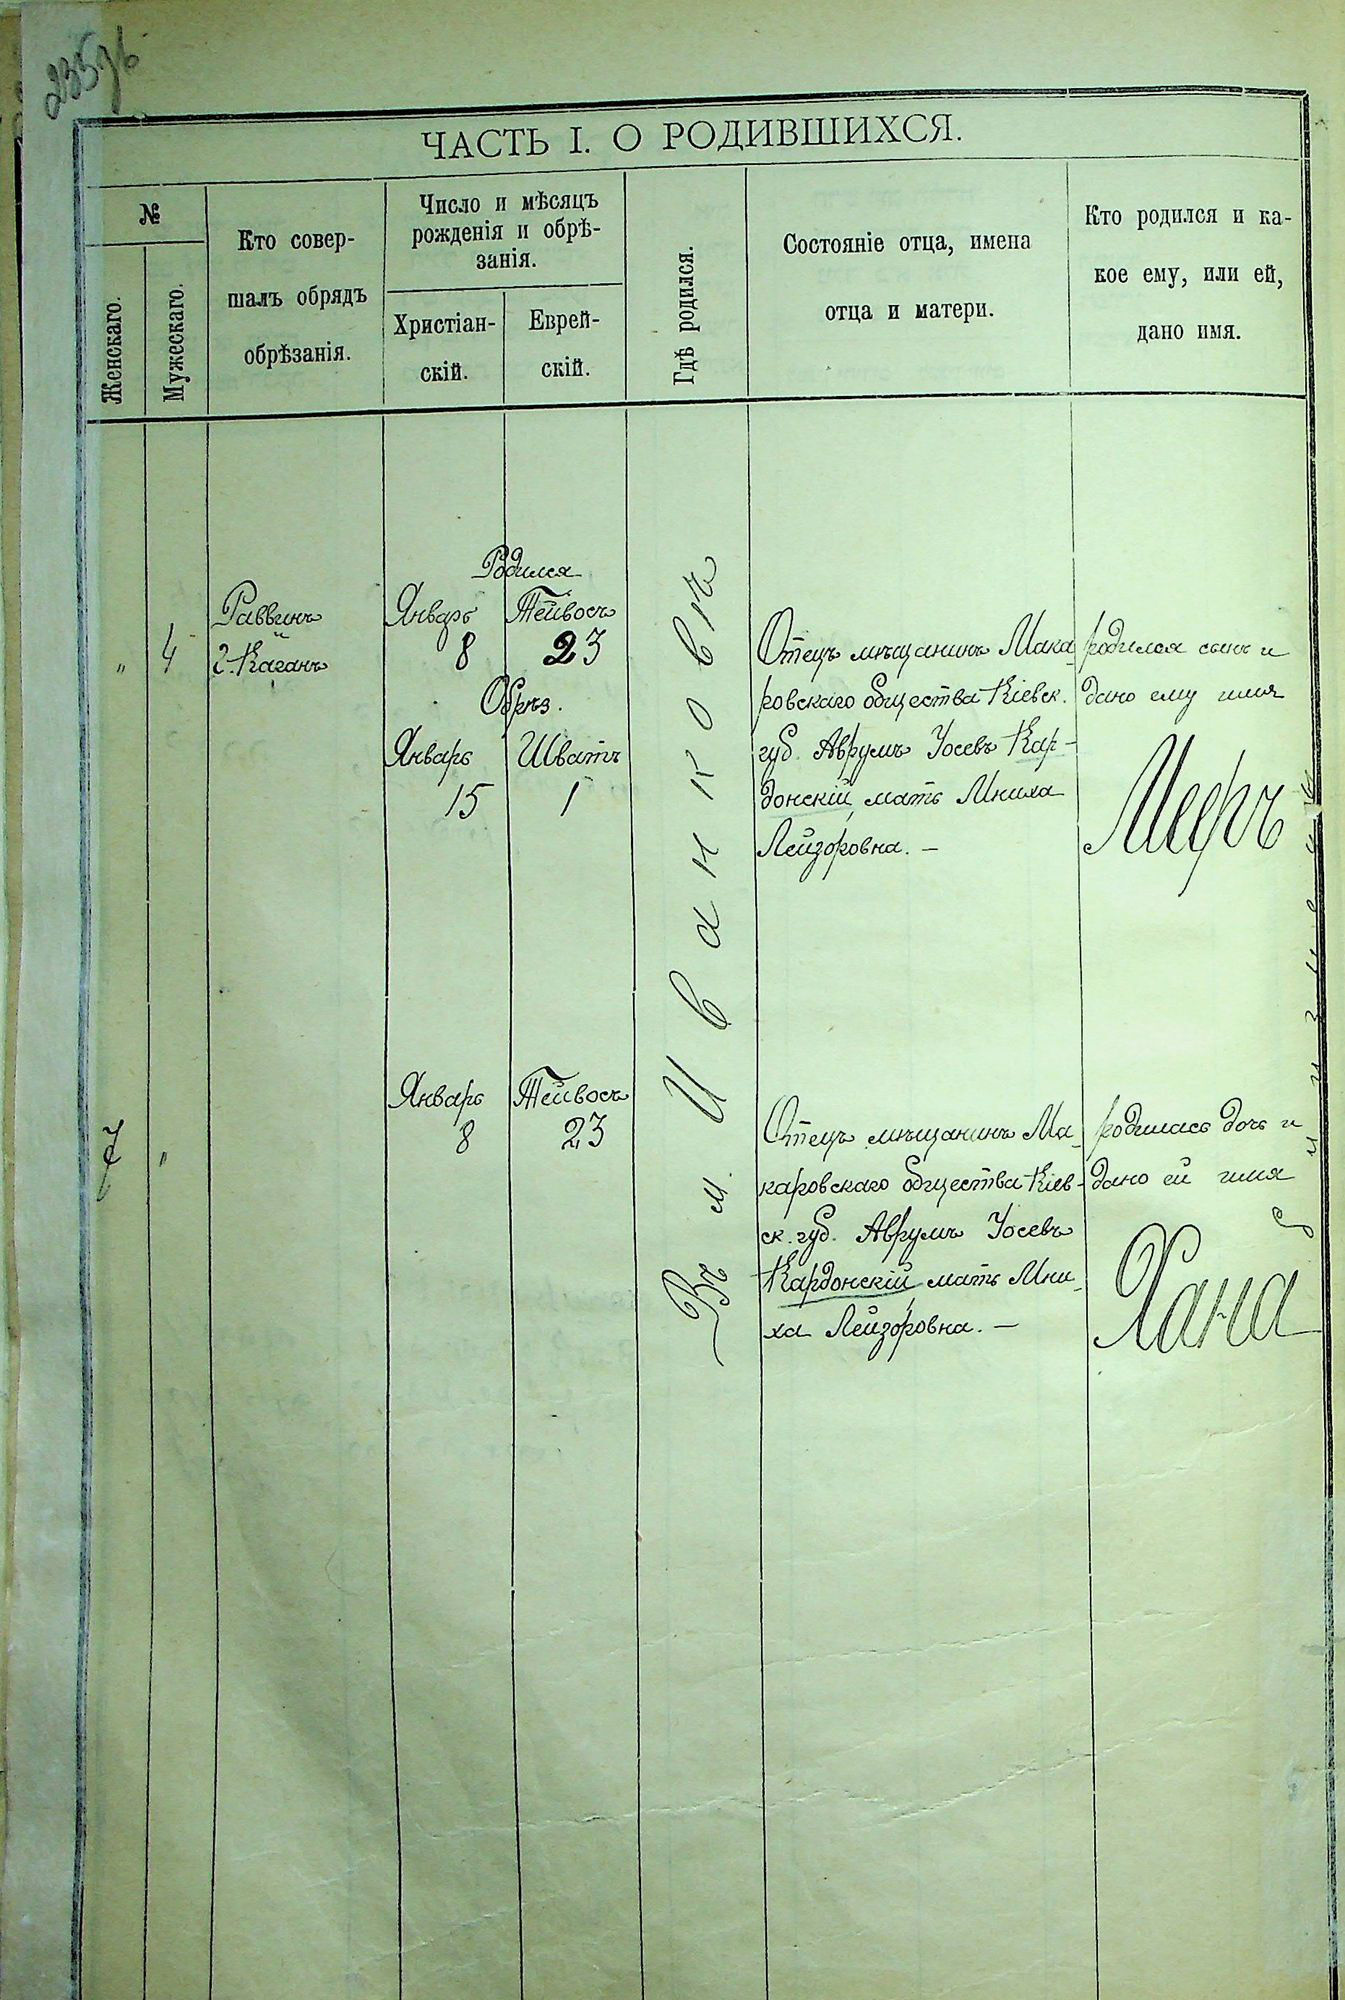 235 зв
ЧАСТЬ I. О РОДИВШИХСЯ.
№
Женскаго.
Мужескаго.
Кто совер-
шалъ обрядъ
обрѣзанія.
Число и мѣсяцъ
рожденія и обрѣ-
занія.
Христіан-
скій.
Еврей-
скій.
Гдѣ родился.
Состояніе отца, имена
отца и матери.
Кто родился и ка-
кое ему, или ей,
дано имя.
" 4
Раввинъ
Г. Каганъ
Родился
Январь Тейвосъ
8 23
Обрѣз.
Январь Шватъ
15 1
Въ м. Иванковѣ
Отецъ мѣщанинъ Мака-
ровскаго общества Кіевск.
губ. Аврумъ Іосевъ Кар-
донскій, мать Мниха
Лейзоровна. —
родился сынъ и
дано ему имя
Мееръ
7 "
Январь Тейвосъ
8 23
Отецъ мѣщанинъ Ма-
каровскаго общества Кіев-
ск. губ. Аврумъ Іосевъ
Кардонскій, мать Мни-
ха Лейзоровна. —
родилась дочь и
дано ей имя
Хана